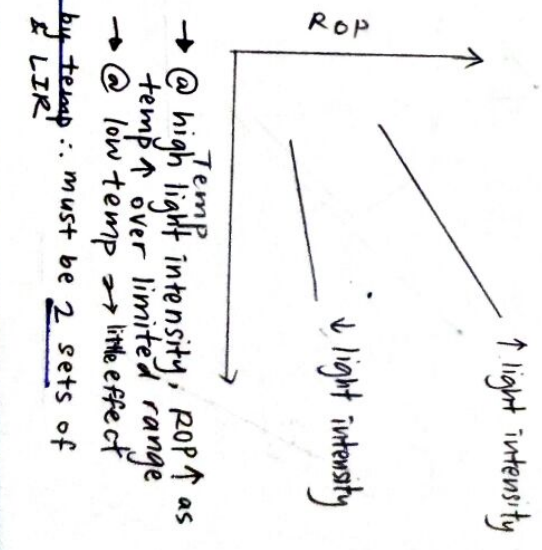 ROP
↑ light intensity
↓ light intensity
Temp
→ @ high light intensity, ROP ↑ as
temp ↑ over limited range
→ @ low temp → little effect
by temp ∴ must be 2 sets of
& LIR